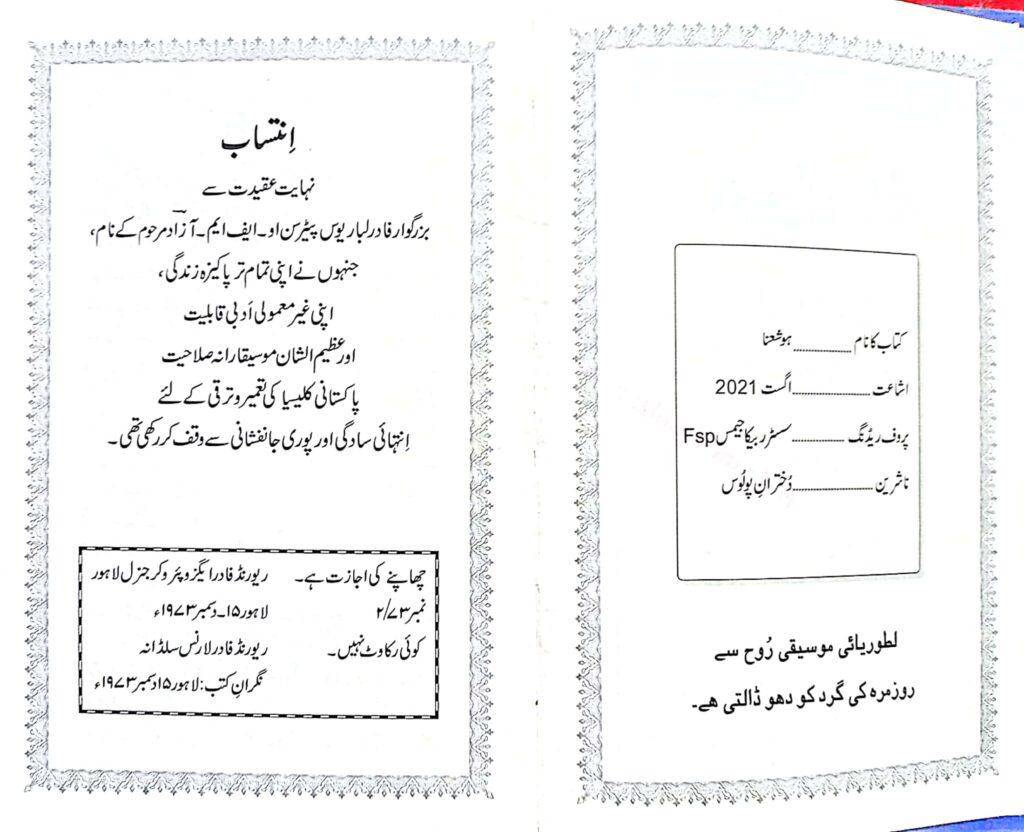 کتاب کا نام ............ ہوشعنا
اشاعت ............ اگست 2021
پروف ریڈنگ ............ سسٹر ربیکا جیمس Fsp
ناشرین ............ دُخترانِ پولُوس
لطوریائی موسیقی رُوح سے
روزمرہ کی گرد کو دھو ڈالتی ھے۔
اِنتساب
نہایت عقیدت سے
بزرگوار فادر لباریوس پیٹرسن او۔ ایف ایم۔ آزادؔ مرحوم کے نام،
جنہوں نے اپنی تمام تر پاکیزہ زندگی،
اپنی غیر معمولی اَدبی قابلیت
اور عظیم الشان موسیقارانہ صلاحیت
پاکستانی کلیسیا کی تعمیر و ترقی کے لئے
اِنتہائی سادگی اور پوری جانفشانی سے وقف کر رکھی تھی۔
چھاپنے کی اجازت ہے۔ ریورنڈ فادر ایگزوپئر وکر جنرل لاہور
نمبر ۲/۷۳ لاہور ۱۵۔ دسمبر ۱۹۷۳ء
کوئی رکاوٹ نہیں۔ ریورنڈ فادر لارنس سلڈانہ
نگرانِ کتب: لاہور ۱۵ دسمبر ۱۹۷۳ء